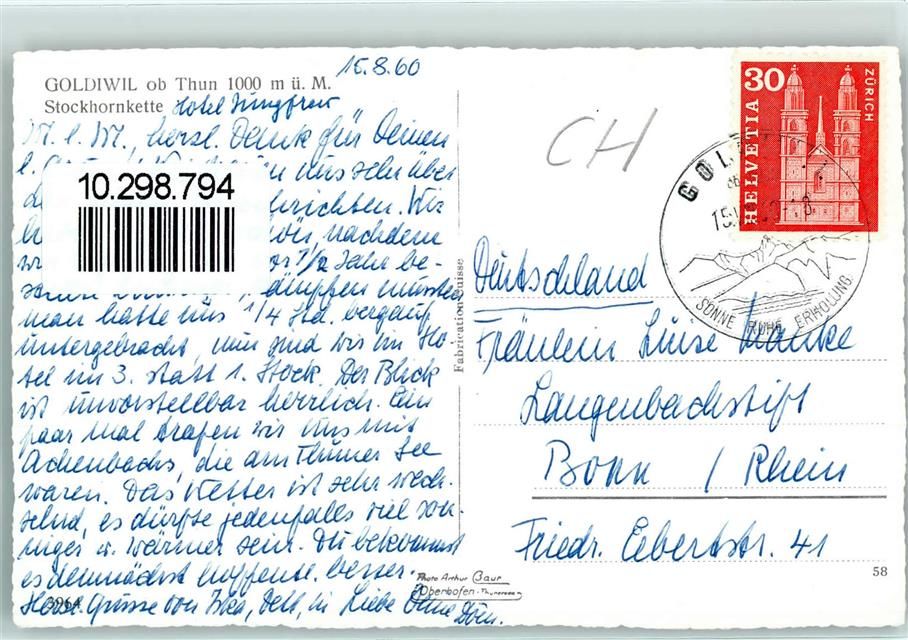 15.8.60
GOLDIWIL ob Thun 1000 m ü. M.
Stockhornkette Hotel Jungfrau
M. l. M., herzl. Dank für Deinen
l. uns sehr über
richten. Wir
wir nachdem
vor 1/2 Jahr be-
dämpfen mussten
man hatte uns 1/4 Std. bergauf
untergebracht, nun sind wir im Ho-
tel im 3. statt 1. Stock. Der Blick
ist unvorstellbar herrlich. Ein
paar mal trafen wir uns mit
Achenbachs, die am Thuner See
waren. Das Wetter ist sehr wech-
selnd, es dürfte jedenfalls viel son-
niger u. wärmer sein. Du bekommst
es demnächst hoffentl. besser.
Herzl. Grüsse von in Liebe Deine
3964
10.298.794
Fabrication Suisse
Photo Arthur Baur
Oberhofen-Thunersee
CH
30
HELVETIA
ZÜRICH
GOL
ob
15.
SONNE RUHE ERHOLUNG
Deutschland
Fräulein Luise Manke
Langenbachstift
Bonn / Rhein
Friedr. Ebertstr. 41
58